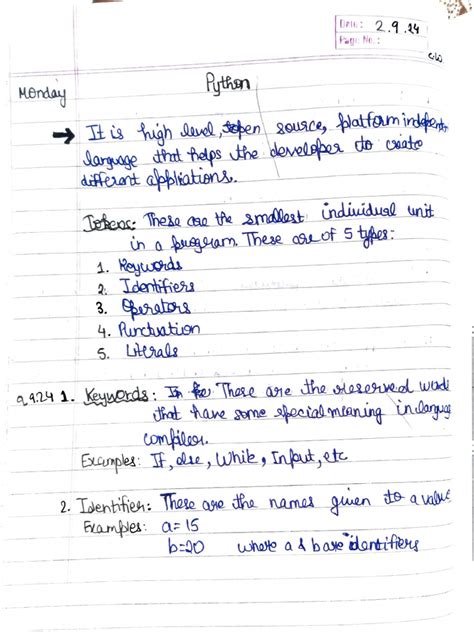 Date: 2.9.24
Page No.:
C.W
Monday
Python
→ It is high level, open source, platform independent
language that helps the developer to create
different applications.
Tokens: These are the smallest individual unit
in a program. These are of 5 types:
1. Keywords
2. Identifiers
3. Operators
4. Punctuation
5. Literals
2.9.24 1. Keywords: These are the reserved words
that have some special meaning in language
compiler.
Examples: If, else, While, Input, etc
2. Identifier: These are the names given to a value
Examples: a=15
b=20 where a & b are identifiers